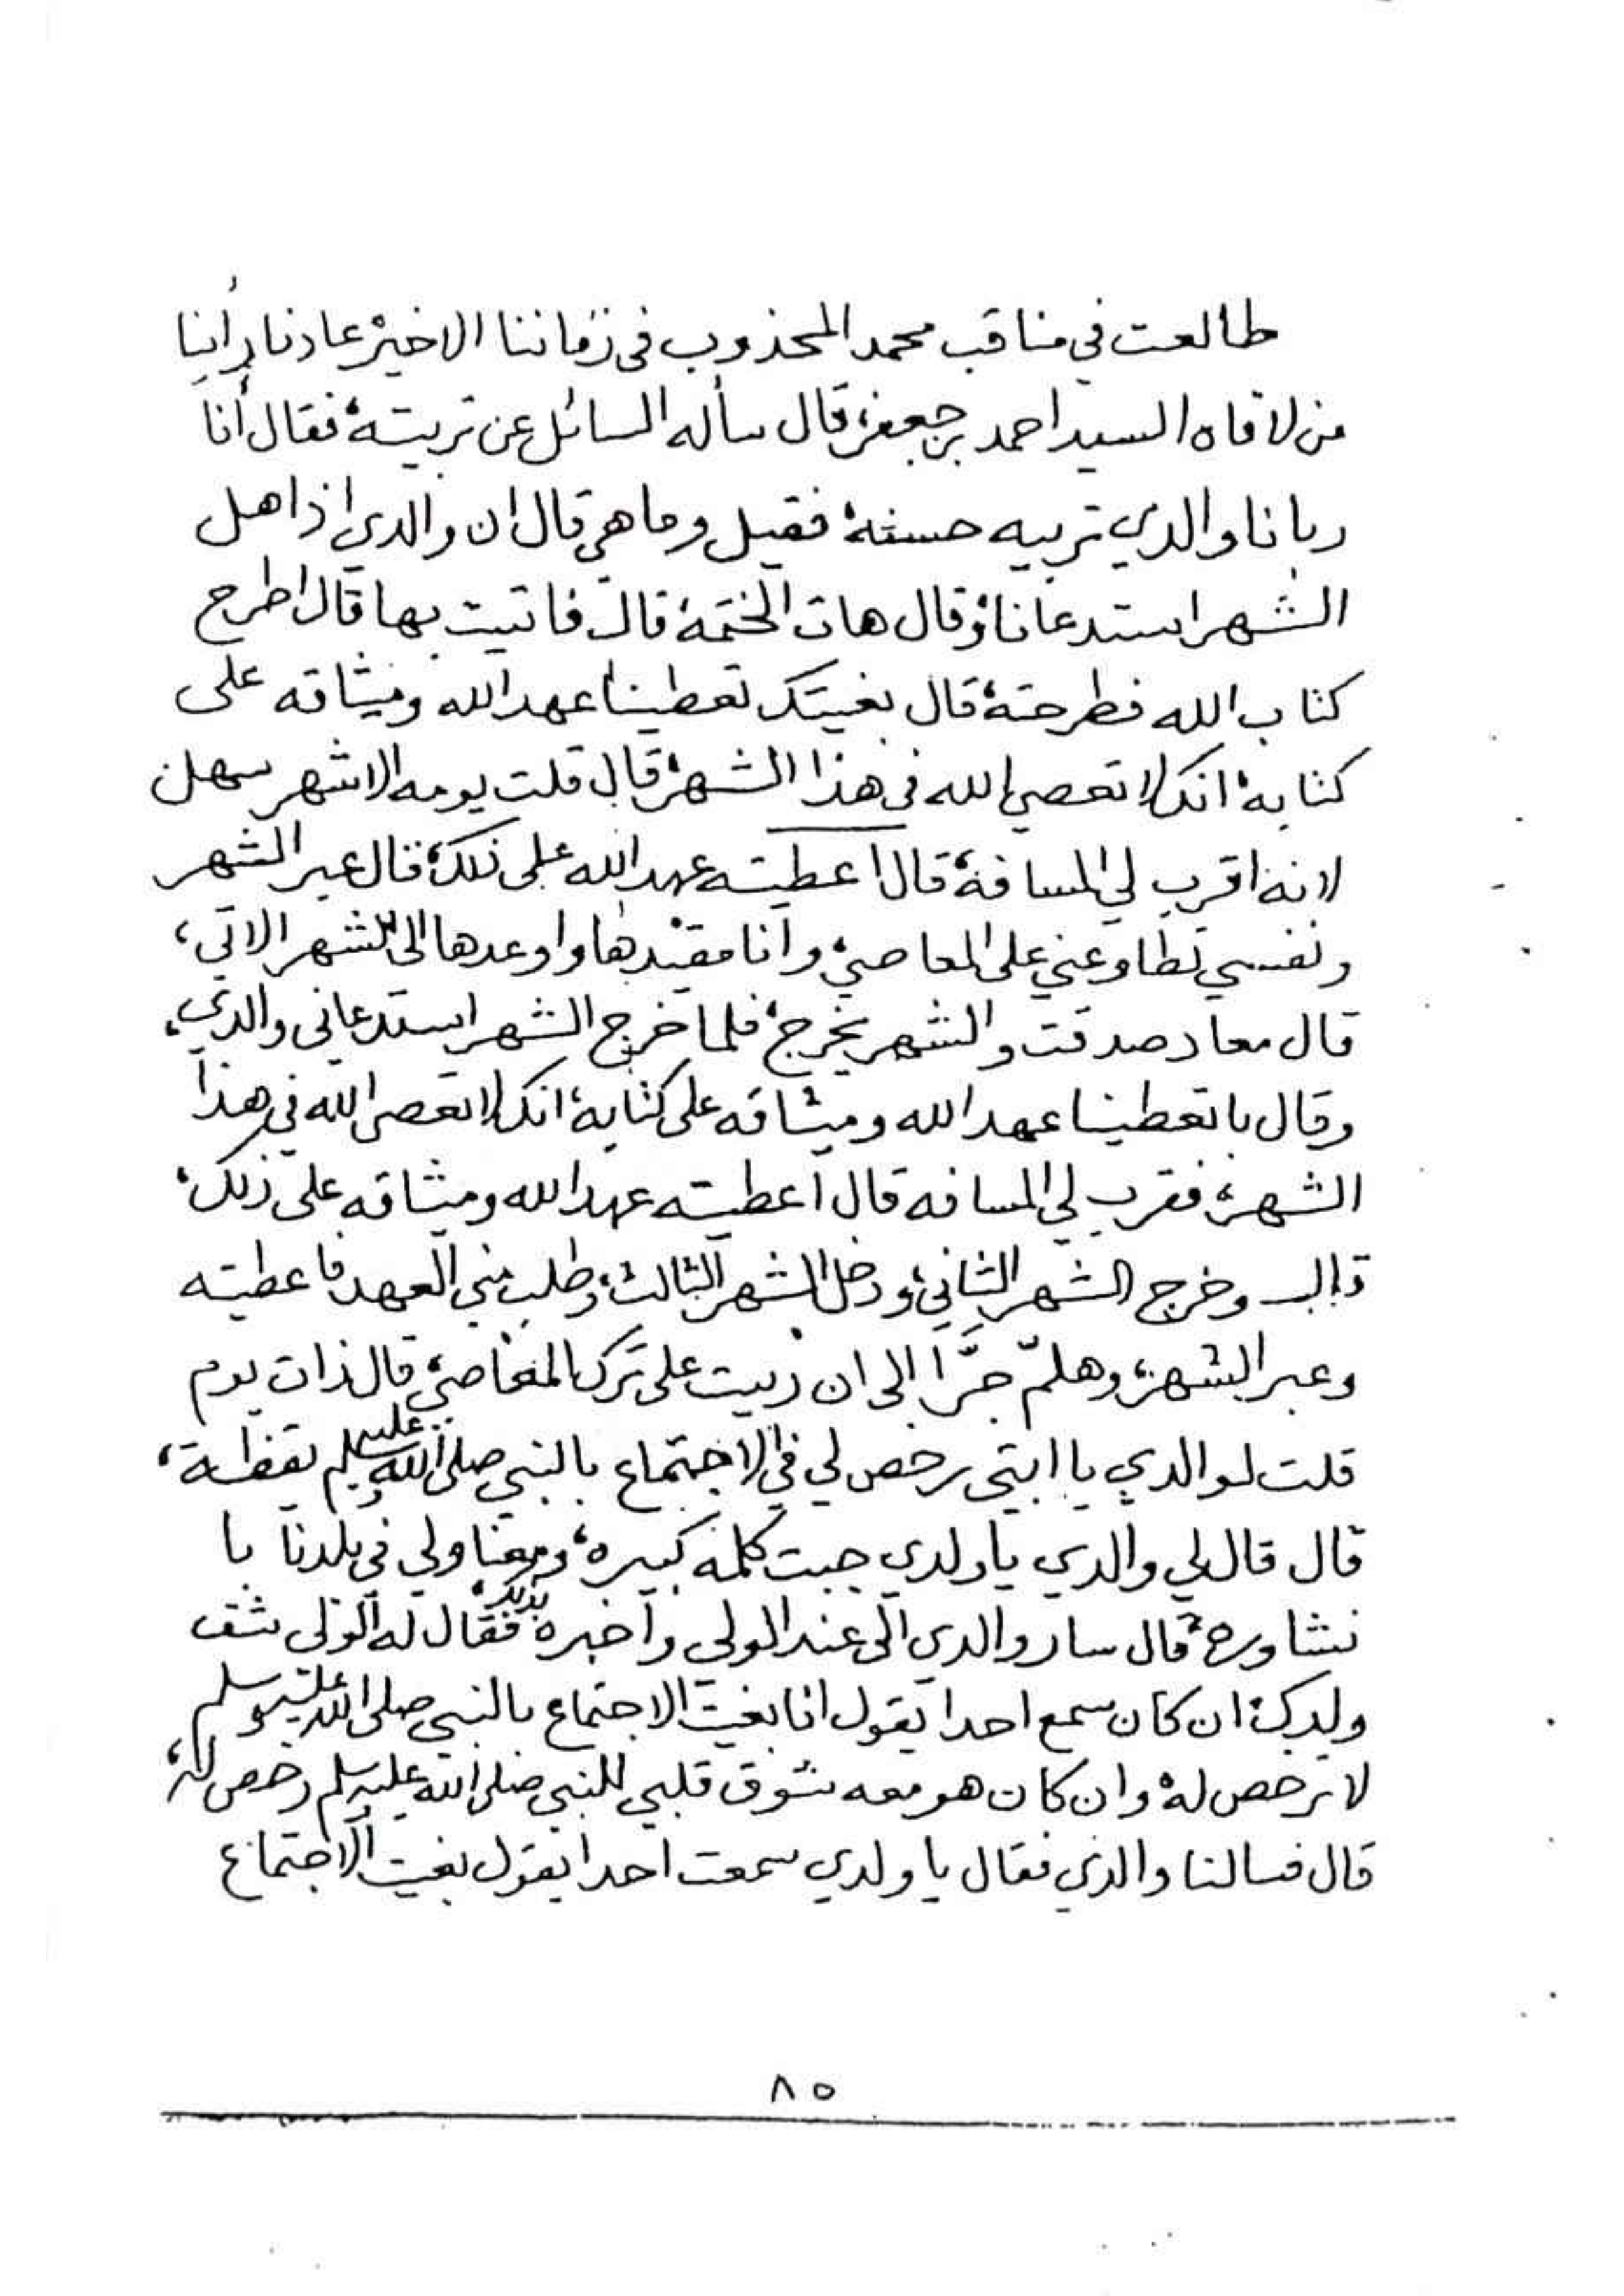 طالعت في مناقب محمد المجذوب في زماننا الاخير، عادنا رأينا
من لاقاه السيد احمد بن جعفر، قال سأله السائل عن تربيته، فقال أنا
ربانا والدي تربيه حسنة، فقيل وما هي قال ان والدي اذا هل
الشهر استدعانا، وقال هات الختمة، قال فاتيت بها قال اطرح
كتاب الله فطرحته، قال بغيتك تعطينا عهد الله وميثاقه على
كتابه، انك لا تعصي الله في هذا الشهر، قال قلت يومه الا شهر سهلن
لانه اقرب لي المسافة، قال اعطيته عهد الله على ذلك، قال عبر الشهر
ونفسي تطاوعني على المعاصي، وأنا مقيدها واوعدها الى الشهر الاتي،
قال معاد صدقت والشهر يخرج، فلما خرج الشهر استدعاني والدي،
وقال با تعطينا عهد الله وميثاقه على كتابه، انك لا تعصي الله في هذا
الشهر، فقرب لي المسافه قال اعطيته عهد الله وميثاقه على ذلك،
قال وخرج الشهر الثاني، ودخل الشهر الثالث، وطلب مني العهد فاعطيته
وعبر الشهر، وهلمّ جرَّا الى ان ربيت على ترك المعاصي، قال ذات يوم
قلت لوالدي يا ابتي رخص لي في الاجتماع بالنبي صلى الله عليه وسلم يقظة،
قال قال لي والدي يا ولدي جبت كلمة كبيره، ومعنا ولي في بلدنا با
نشاوره، قال سار والدي الى عند الولي وأخبره فقال له الولي شف
ولدك، ان كان سمع احدا يقول انا بغيت الاجتماع بالنبي صلى الله عليه وسلم
لا ترخص له، وان كان هو معه شوق قلبي للنبي صلى الله عليه وسلم رخص له،
قال فسالنا والدي فقال يا ولدي سمعت احدا يقول بغيت الاجتماع
٨٥